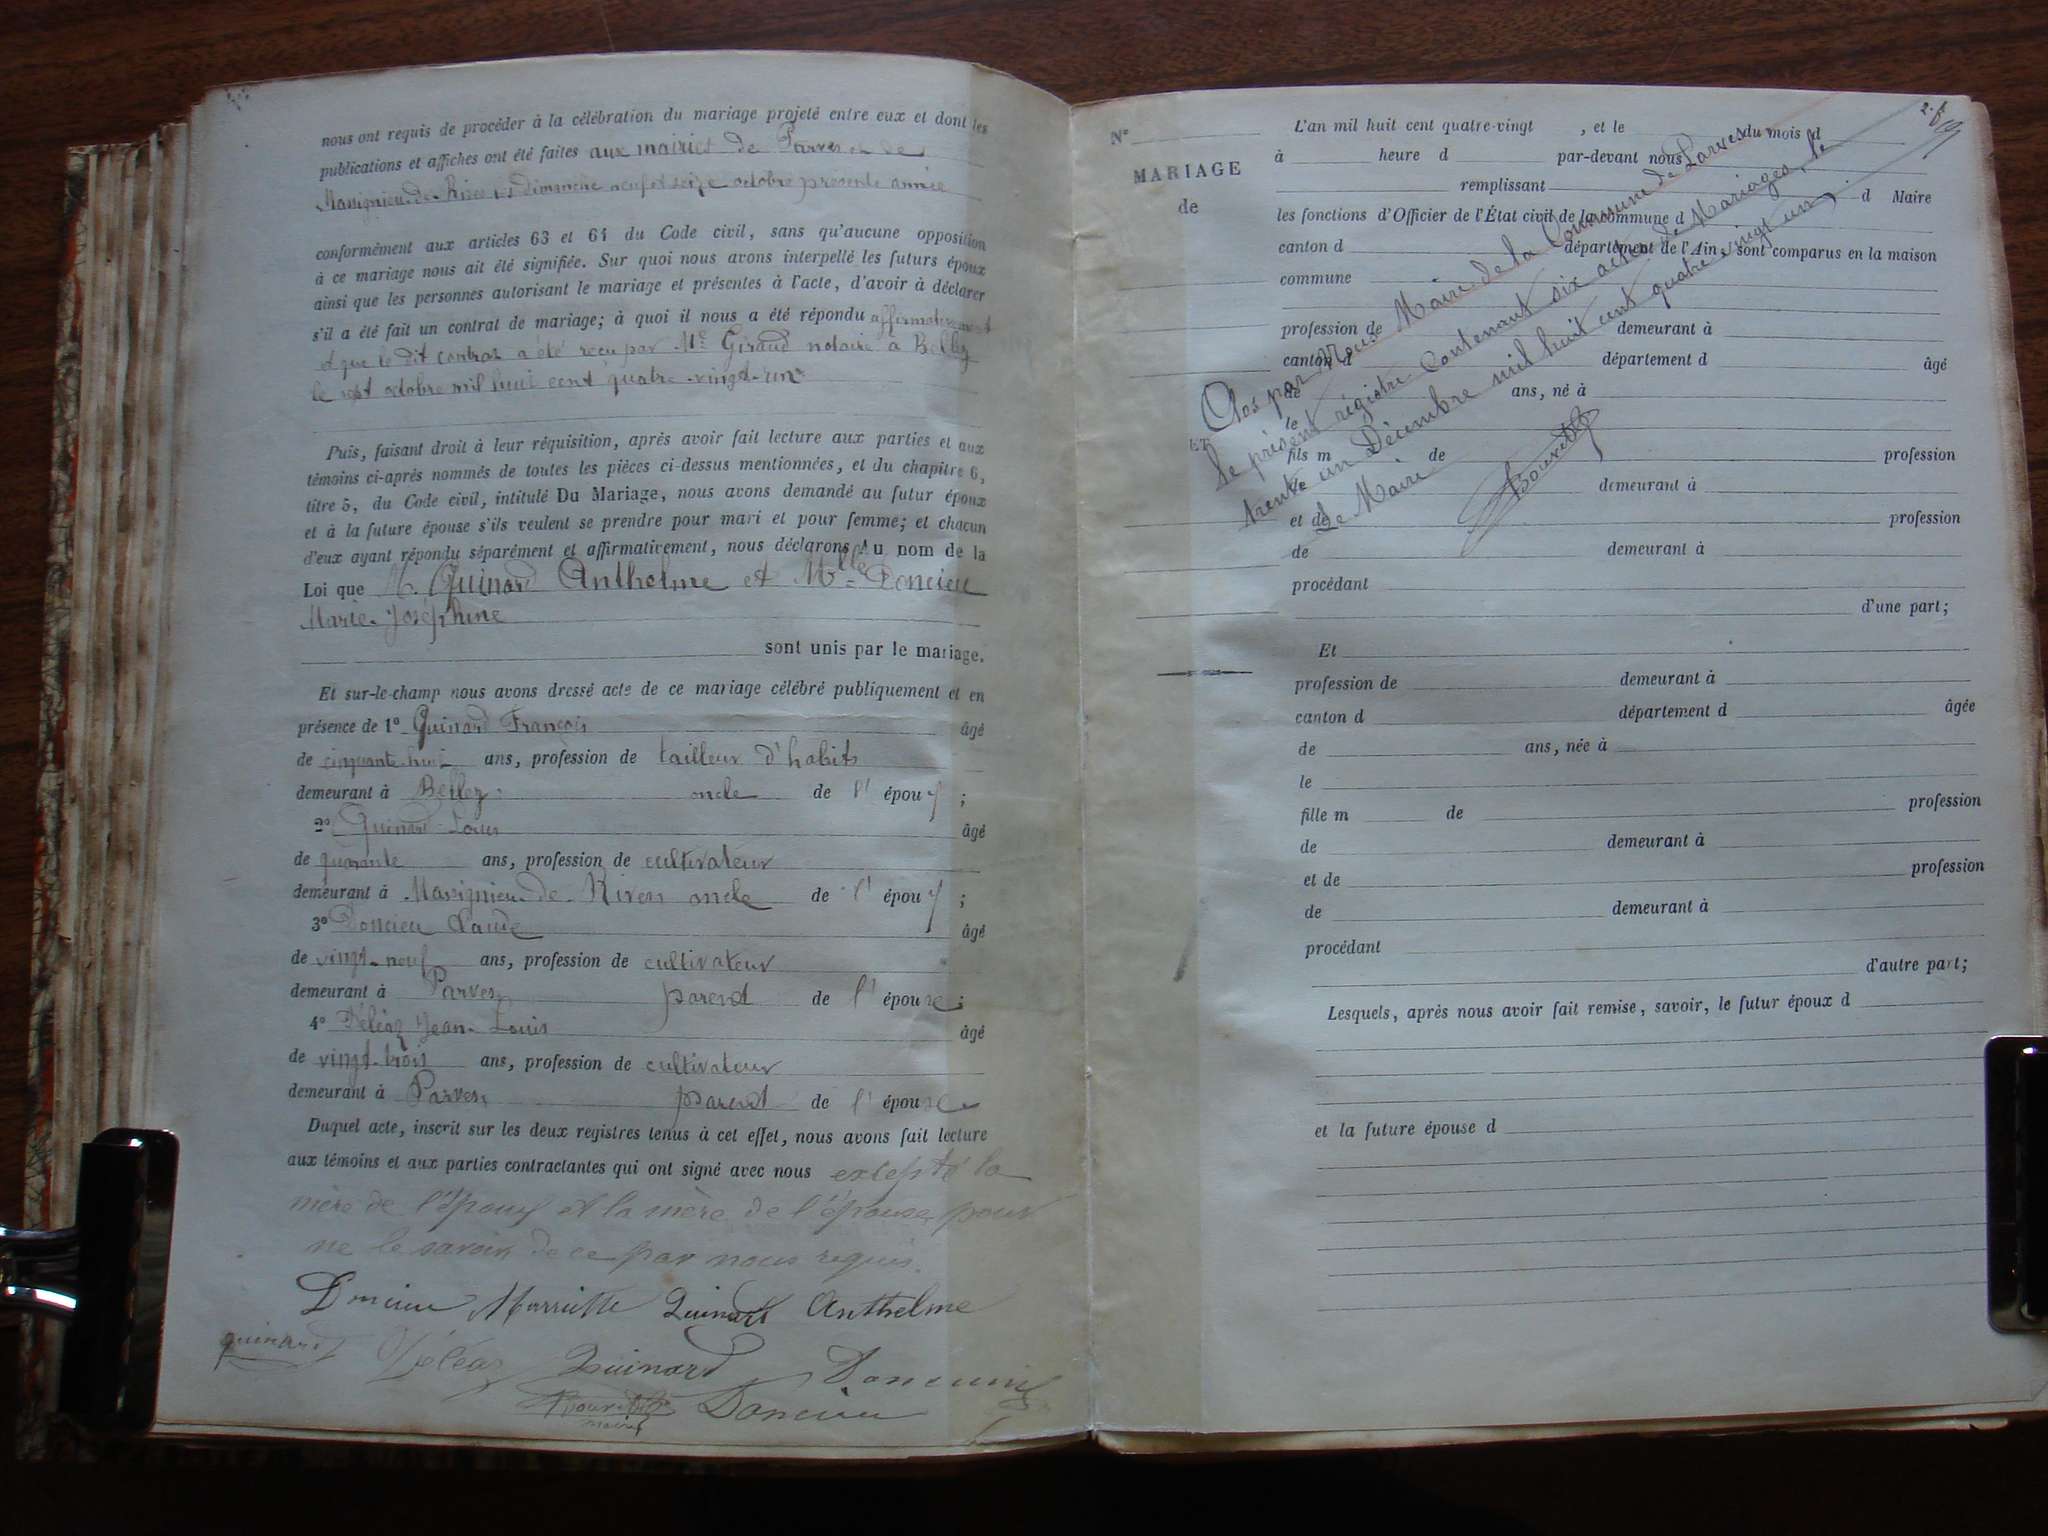 nous ont requis de procéder à la célébration du mariage projeté entre eux et dont les
publications et affiches ont été faites aux mairies de Parves et de
Massignieu-de-Rives les dimanche neuf et seize octobre présente année
conformément aux articles 63 et 64 du Code civil, sans qu'aucune opposition
à ce mariage nous ait été signifiée. Sur quoi nous avons interpellé les futurs époux
ainsi que les personnes autorisant le mariage et présentes à l'acte, d'avoir à déclarer
s'il a été fait un contrat de mariage; à quoi il nous a été répondu affirmativement
et que le dit contrat a été reçu par Me Giraud notaire à Belley
le sept octobre mil huit cent quatre-vingt-un
Puis, faisant droit à leur réquisition, après avoir fait lecture aux parties et aux
témoins ci-après nommés de toutes les pièces ci-dessus mentionnées, et du chapitre 6,
titre 5, du Code civil, intitulé Du Mariage, nous avons demandé au futur époux
et à la future épouse s'ils veulent se prendre pour mari et pour femme; et chacun
d'eux ayant répondu séparément et affirmativement, nous déclarons Au nom de la
Loi que M. Quinard Anthelme et Melle Doncieu
Marie-Joséphine
sont unis par le mariage.
Et sur-le-champ nous avons dressé acte de ce mariage célébré publiquement et en
présence de 1º Quinard François âgé
de cinquante-huit ans, profession de tailleur d'habits
demeurant à Belley oncle de l' époux ;
2º Quinard Louis âgé
de quarante ans, profession de cultivateur
demeurant à Massignieu-de-Rives oncle de l' époux ;
3º Doncieu Claude âgé
de vingt-neuf ans, profession de cultivateur
demeurant à Parves parent de l' épouse ;
4º Déléaz Jean-Louis âgé
de vingt-trois ans, profession de cultivateur
demeurant à Parves parent de l' épouse
Duquel acte, inscrit sur les deux registres tenus à cet effet, nous avons fait lecture
aux témoins et aux parties contractantes qui ont signé avec nous excepté la
mère de l'époux et la mère de l'épouse pour
ne le savoir de ce par nous requis.
Doncieu Marriette Quinard Anthelme
quinard Déléaz Quinard Doncieu
maire Doncieu
Nº
MARIAGE
de
ET
L'an mil huit cent quatre-vingt , et le du mois d
à heure d par-devant nous
remplissant d Maire
les fonctions d'Officier de l'État civil de la commune d
canton d département de l'Ain, sont comparus en la maison
commune
profession de demeurant à
canton d département d âgé
de ans, né à
le
fils m de profession
de demeurant à
et de profession
de demeurant à
procédant
d'une part;
Et
profession de demeurant à
canton d département d âgée
de ans, née à
le
fille m de profession
de demeurant à
et de profession
de demeurant à
procédant
d'autre part;
Lesquels, après nous avoir fait remise, savoir, le futur époux d
et la future épouse d
Clos par Nous Maire de la Commune de Parves
le présent régistre contenant six actes de Mariages, le
trente un Décembre mil huit cent quatre vingt un,
Le Maire